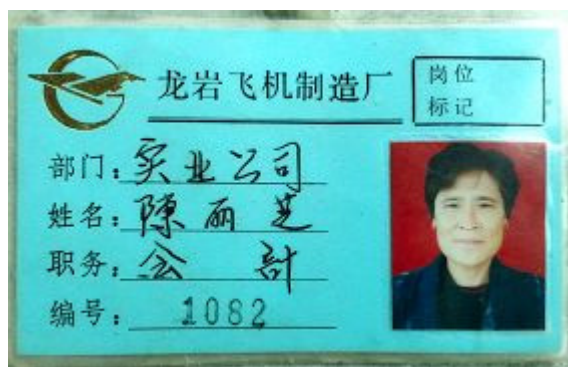 龙岩飞机制造厂
岗位
标记
部门：实业公司
姓名：陈丽芝
职务：会计
编号：1082